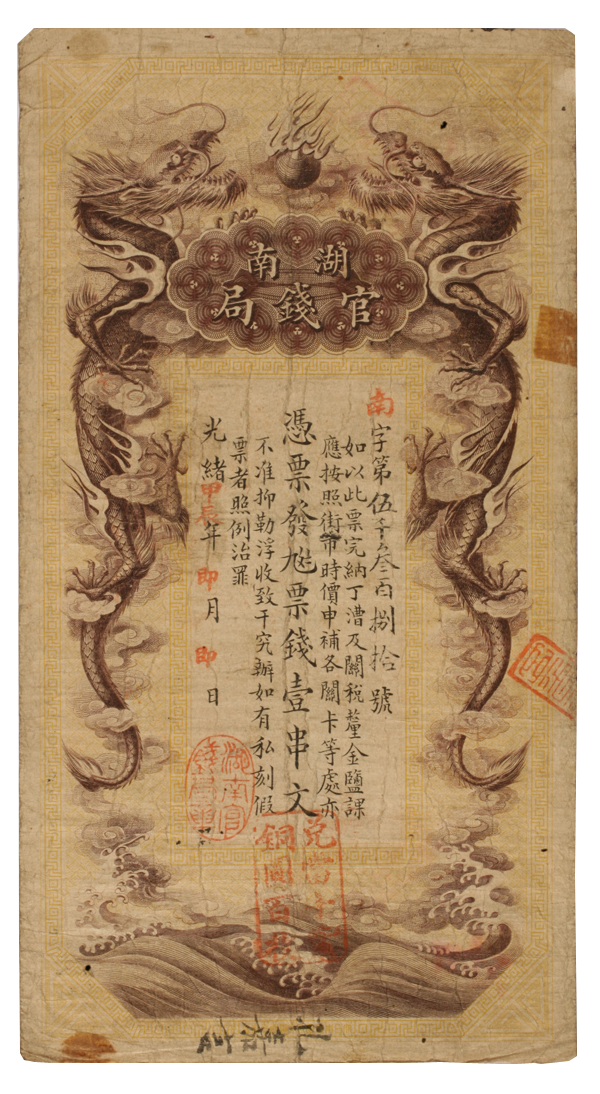 湖南
官錢局
南字第伍千叁百捌拾號
如以此票完納丁漕及關稅釐金鹽課
應按照街市時價申補各關卡等處亦
憑票發兌票錢壹串文
不准抑勒浮收致干究辦如有私刻假
票者照例治罪
光緒甲辰年 即月 即日
湖南官
錢局